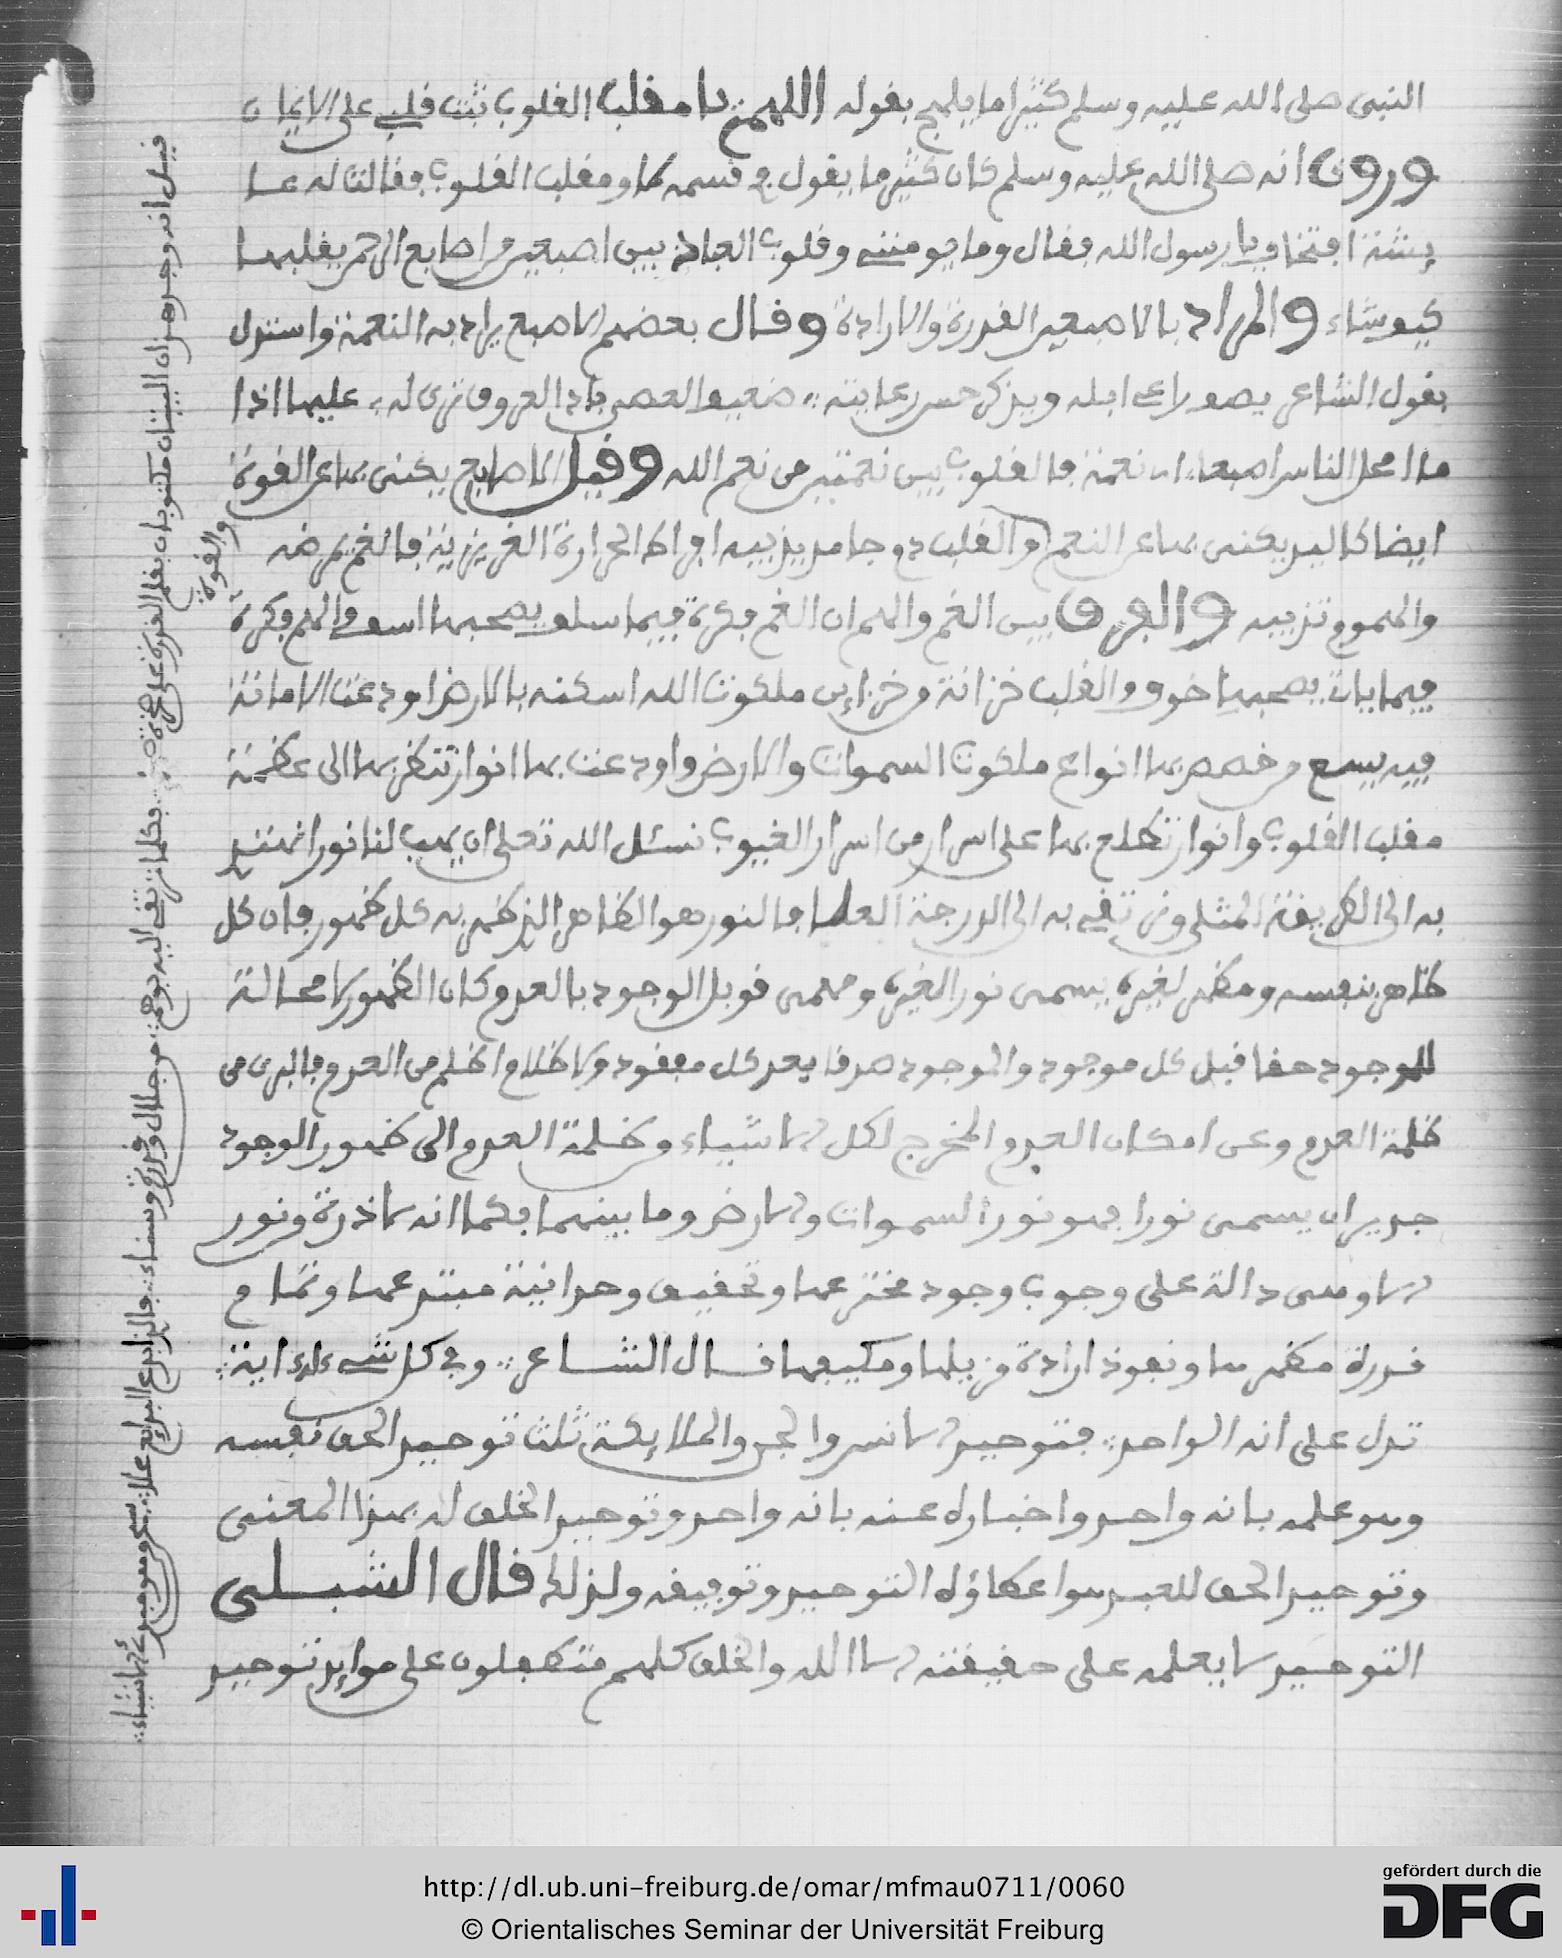 النبى صلى الله عليه وسلم كثيرا ما يلهج بقوله اللهم يا مقلب القلوب ثبت قلبي على الايمان
وروى انه صلى الله عليه وسلم كان كثير ما يقول في قسمه لا ومقلب القلوب فقالت له عا
يشة اتخاف يا رسول الله فقال وما يومنني وقلوب العباد بين اصبعين من اصابع الرحمن يقلبها
كيف شاء والمراد بالاصبعين القدرة والارادة وقال بعضهم الاصبع يراد به النعمة واستدل
بقول الشاعر يصف راعي ابله ويذكر حسن رعايته ضعيف العصى بادي العروق ترى له عليها اذا
ما امحل الناس اصبعا اي نعمة فالقلوب بين نعمتين من نعم الله وقيل الاصابع يكنى بها عن القوة
ايضا كاليد يكنى بها عن النعم والقلب دم جامد يذيبه افراط الحرارة الغريزية فالغم يمرضه
والهموم تذيبه والفرق بين الغم والهم ان الغم فكرة فيما سلف يصحبها اسف والهم فكرة
فيما يات يصحبها خوف والقلب خزانة من خزاين ملكوت الله اسكنه بالارض اودعت الامانة
فيه يسع من خصص بها انواع ملكوت السموات والارض واودعت بها انوار تنظر بها الى عظمة
مقلب القلوب وانوار تطلع بها على اسرار من اسرار الغيوب نسئل الله تعلى ان يهب لنا نورا نهتدي
به الى الطريقة المثلى ونرتقي به الى الدرجة العليا فالنور هو الظاهر الذي ظهر به كل ظهور فان كل
ظاهر بنفسه ومظهر لغيره يسمى نور الغيره ومهمى قوبل الوجود بالعدم كان الظهور لا محالة
للوجود حقا قبل كل موجود والموجود صرفا بعد كل مفقود ولا ظلام اظلم من العدم فالبرى من
ظلمة العدم وعن امكان العدم المخرج لكل الاشياء من ظلمة العدم الى ظهور الوجود
جدير ان يسمى نورا فهو نور السموات والارض وما بينهما فكما انه لا ذرة من نور
الا وهى دالة على وجوب وجود مخترعها وتحقيق وحدانية مبتدعها وتمام
قدرة مظهرها ونفوذ ارادة مزيلها ومكيفها قال الشاعر وفي كل شيء له اية
تدل على انه الواحد فتوحيد الانس والجن والملايكة ثلث توحيد الحق نفسه
وهو علمه بانه واحد واخباره عنه بانه واحد وتوحيد الخلق له بهذا المعنى
وتوحيد الحق للعبد هو اعطاؤه التوحيد وتوفيقه ولذلك قال الشبلى
التوحيد لا يعلمه على حقيقته الا الله والخلق كلهم متطفلون على موايد توحيد
والقوة
قيل انه وجد هذان البيتان مكتوبان بقلم القدرة على
http://dl.ub.uni-freiburg.de/omar/mfmau0711/0060
© Orientalisches Seminar der Universität Freiburg
gefördert durch die
DFG